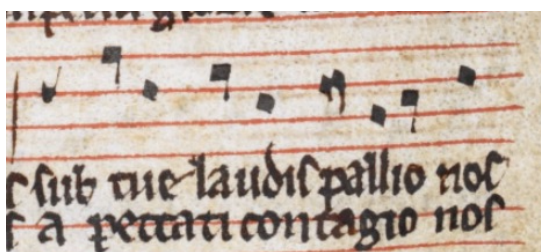 sub tue laudis pallio nos
a peccati contagio nos